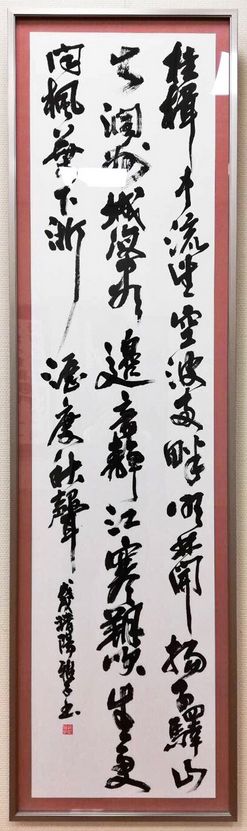 桂楫中流望空波兩畔明林開揚子驛山
出潤州城海盡邊陰靜江寒朔吹生更
聞楓葉下淅瀝度秋聲
書